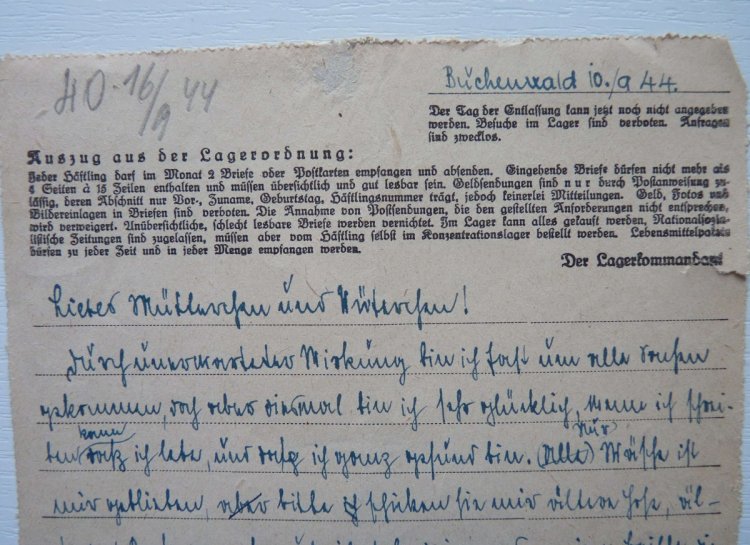 40. 16/9 44
Buchenwald 10./9 44.
Der Tag der Entlassung kann jetzt noch nicht angegeben
werden. Besuche im Lager sind verboten. Anfragen
sind zwecklos.
Auszug aus der Lagerordnung:
Jeder Häftling darf im Monat 2 Briefe oder Postkarten empfangen und absenden. Eingehende Briefe dürfen nicht mehr als
4 Seiten à 15 Zeilen enthalten und müssen übersichtlich und gut lesbar sein. Geldsendungen sind nur durch Postanweisung zu-
lässig, deren Abschnitt nur Vor-, Zuname, Geburtstag, Häftlingsnummer trägt, jedoch keinerlei Mitteilungen. Geld, Fotos und
Bildereinlagen in Briefen sind verboten. Die Annahme von Postsendungen, die den gestellten Anforderungen nicht entsprechen,
wird verweigert. Unübersichtliche, schlecht lesbare Briefe werden vernichtet. Im Lager kann alles gekauft werden. Nationalsozia-
listische Zeitungen sind zugelassen, müssen aber vom Häftling selbst im Konzentrationslager bestellt werden. Lebensmittelpakete
dürfen zu jeder Zeit und in jeder Menge empfangen werden.
Der Lagerkommandant
Liebes Mütterchen und Väterchen!
Durch unerwarteter Wirkung bin ich fast um alle
gekommen, doch aber diesmal bin ich sehr glücklich, wenn ich schrei-
ben kann daß ich lebe, und daß ich ganz gesund bin. (Alle) Nur Wäsche ist
mir geblieben, aber bitte schicken sie mir ältere Hose, äl-